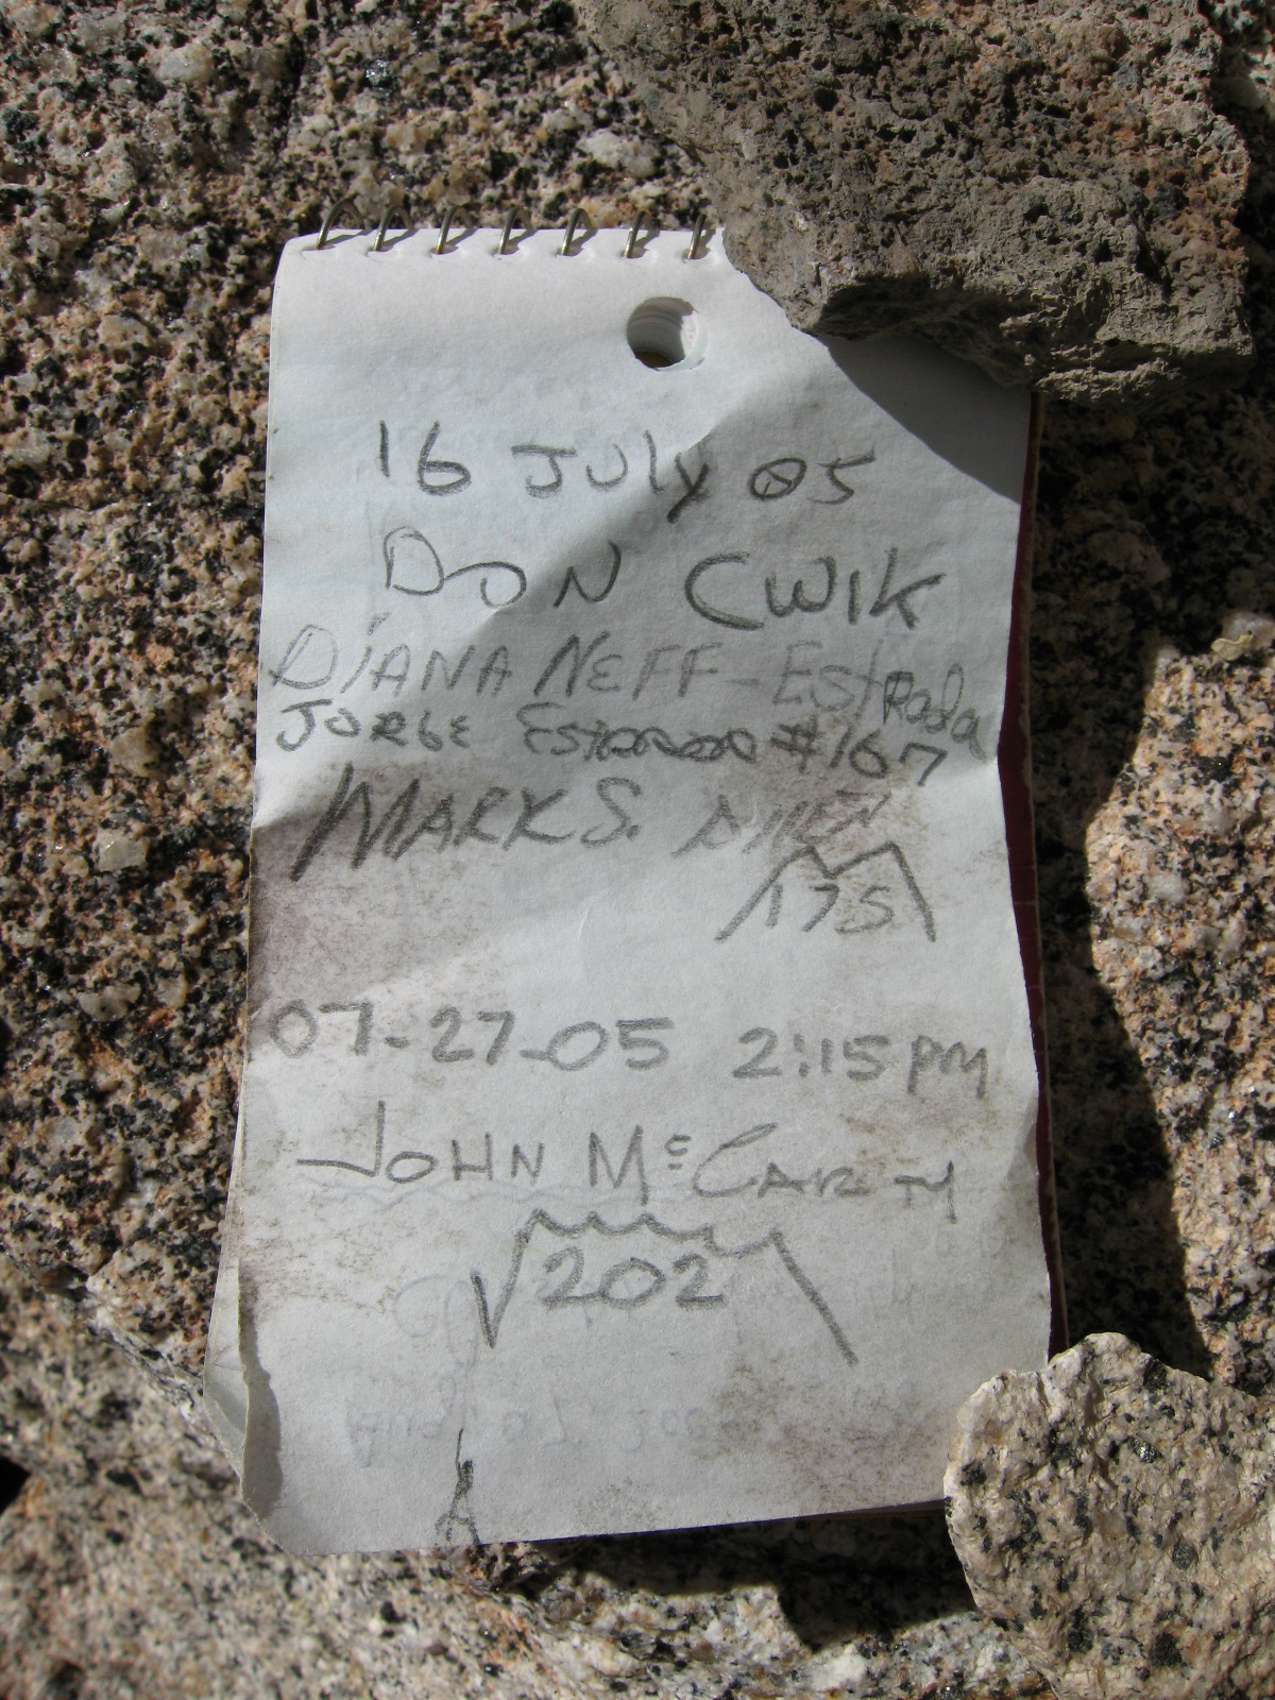 16 July 05
DON CWIK
DIANA NEFF-Estrada
JORGE #167
MARK S.
175
07-27-05 2:15 pm
JOHN McCARTY
202